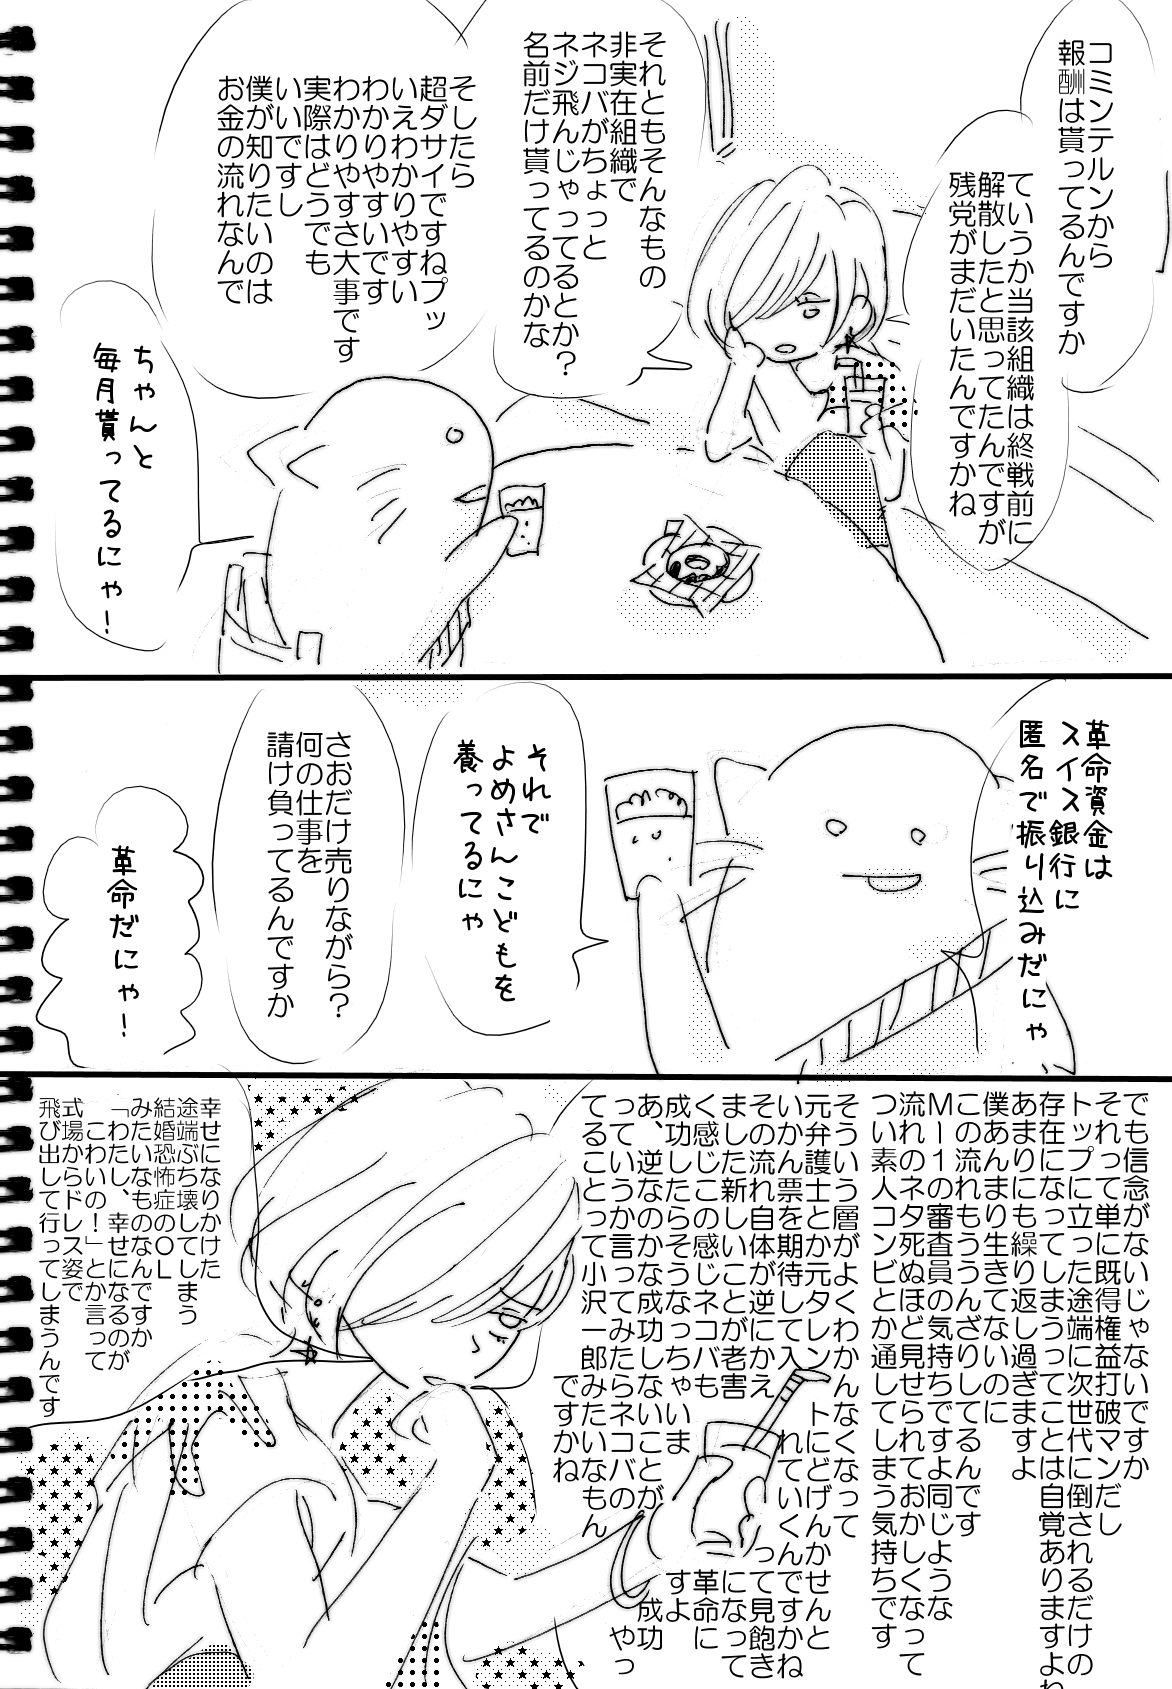 コミンテルンから
報酬は貰ってるんですか
ていうか当該組織は終戦前に
解散したと思ってたんですが
残党がまだいたんですかね
それともそんなもの
非実在組織で
ネコバがちょっと
ネジ飛んじゃってるとか?
名前だけ貰ってるのかな
そしたら
超ダサイですねプッ
いえわかりやすい
わかりやすいです
わかりやすさ大事です
実際はどうでも
いいですし
僕が知りたいのは
お金の流れなんで
ちゃんと
毎月貰ってるにゃ!
革命資金は
スイス銀行に
匿名で振り込みだにゃ
それで
よめさんこどもを
養ってるにゃ
さおだけ売りながら?
何の仕事を
請け負ってるんですか
革命だにゃ!
でも信念がないじゃないですか
それって単に既得権益打破マンだし
トップに立った途端に次世代に倒されるだけの
存在になってしまうってことは自覚ありますよね
あまりにも繰り返し過ぎますよ
僕あんまり生きてないのに
この流れもううんざりしてるんです
M-1の審査員の気持ちですよ同じような
流れのネタ死ぬほど見せられておかしくなって
つい素人コンビとか通してしまう気持ちです
そういう層がよくわかんなくなって
元弁護士とか元タレントにどげんかせんと
いかん票を期待して入れていくんですかね
その流れ自体が逆にかえって見飽き
ました新しいことが老害になって
く感じこの感じネコバも革命に
成功したらそうなっちゃいますよ
あ、逆なのかな成功しないことが成功
っていうか言ってみたらネコバのやっ
てることって小沢一郎みたいなもん
ですかね
幸せになりかけた
途端ぶち壊してしまう
結婚恐怖症のOL
みたいなものなんですか
「わたし、幸せになるのが
こわいの!」とか言って
式場からドレス姿で
飛び出して行ってしまうんです